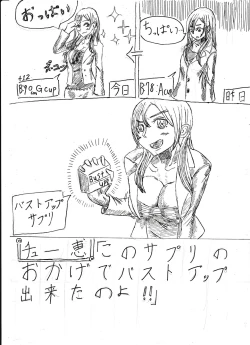 ちっぱい…
B78 Acup
昨日
おっぱい
+12
B90 Gcup
今日
BUST
UP
バストアップ
サプリ
「チュー恵「このサプリの
おかげでバストアップ
出来たのよ!!」